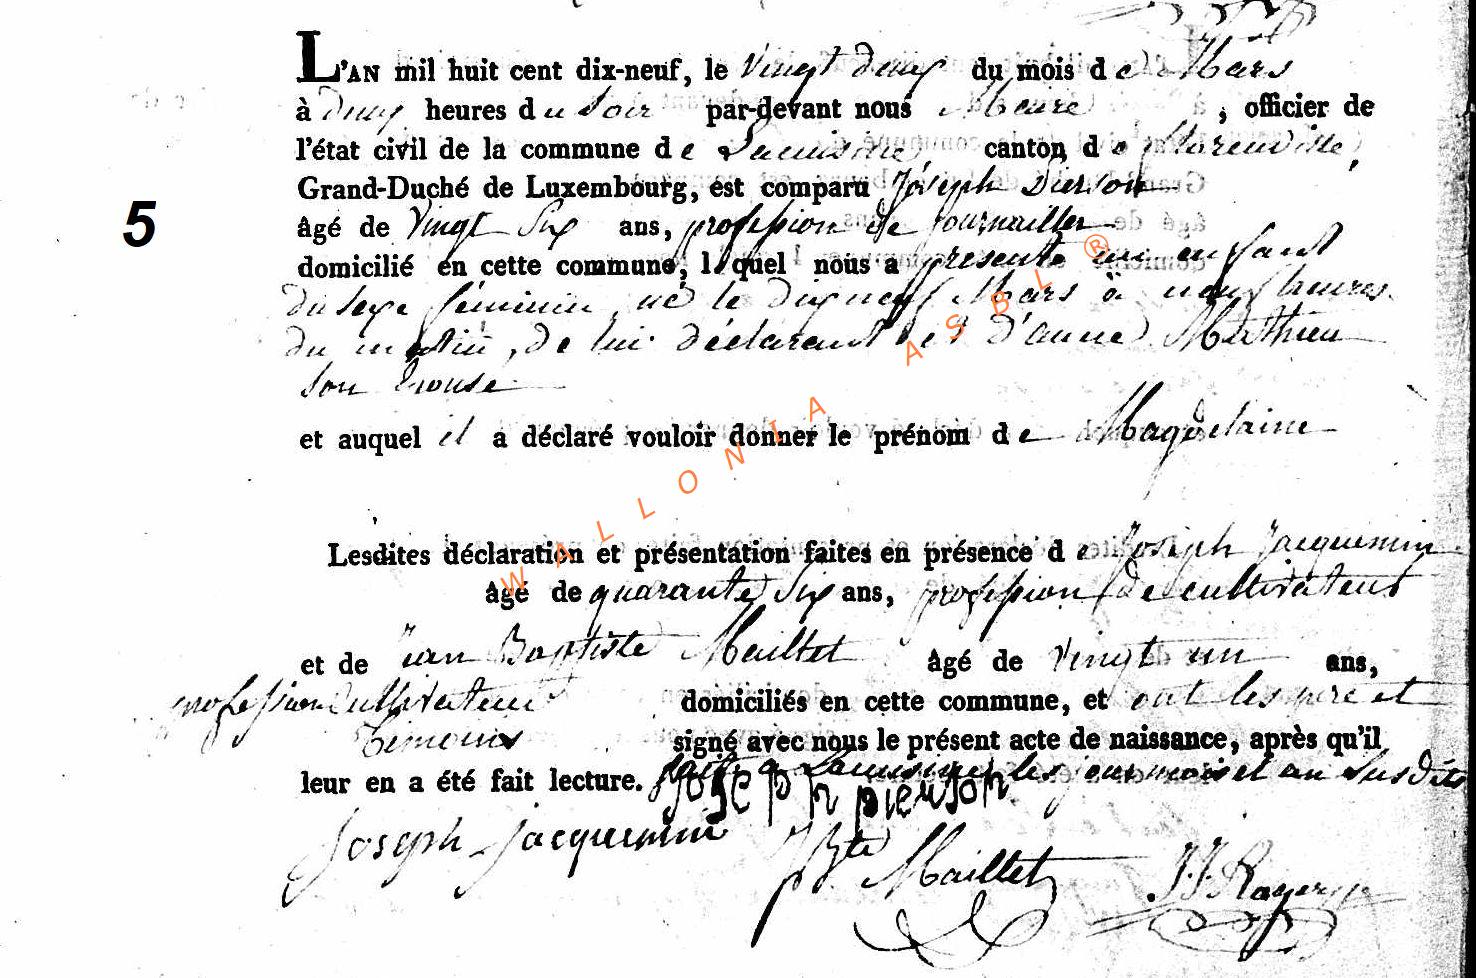 L'AN mil huit cent dix-neuf, le Vingt deux du mois de Mars
à deux heures du soir par-devant nous Maire, officier de
l'état civil de la commune de Lacuisine canton de florenville,
Grand-Duché de Luxembourg, est comparu Joseph Pierson
5
âgé de Vingt Six ans, profession de journailler
domicilié en cette commune, lequel nous a presenté un enfant
du sexe féminin né le dix neuf Mars à neuf heures
du matin, de lui déclarant et d'anne Mathieu
son Epouse
et auquel il a déclaré vouloir donner le prénom de Magdelaine
Lesdites déclaration et présentation faites en présence de Joseph Jacquemin
âgé de quarante Six ans, profession de cultivateur
et de Jean Baptiste Maillet âgé de Vingt un ans,
profession Cultivateur domiciliés en cette commune, et ont les pere et
Temoins signé avec nous le présent acte de naissance, après qu'il
leur en a été fait lecture. fait a Lacuisine les jour mois et an Susdits
joseph pierson
Joseph Jacquemin
J Bte Maillet
J.J. Roger
WALLONIA ASBL ®